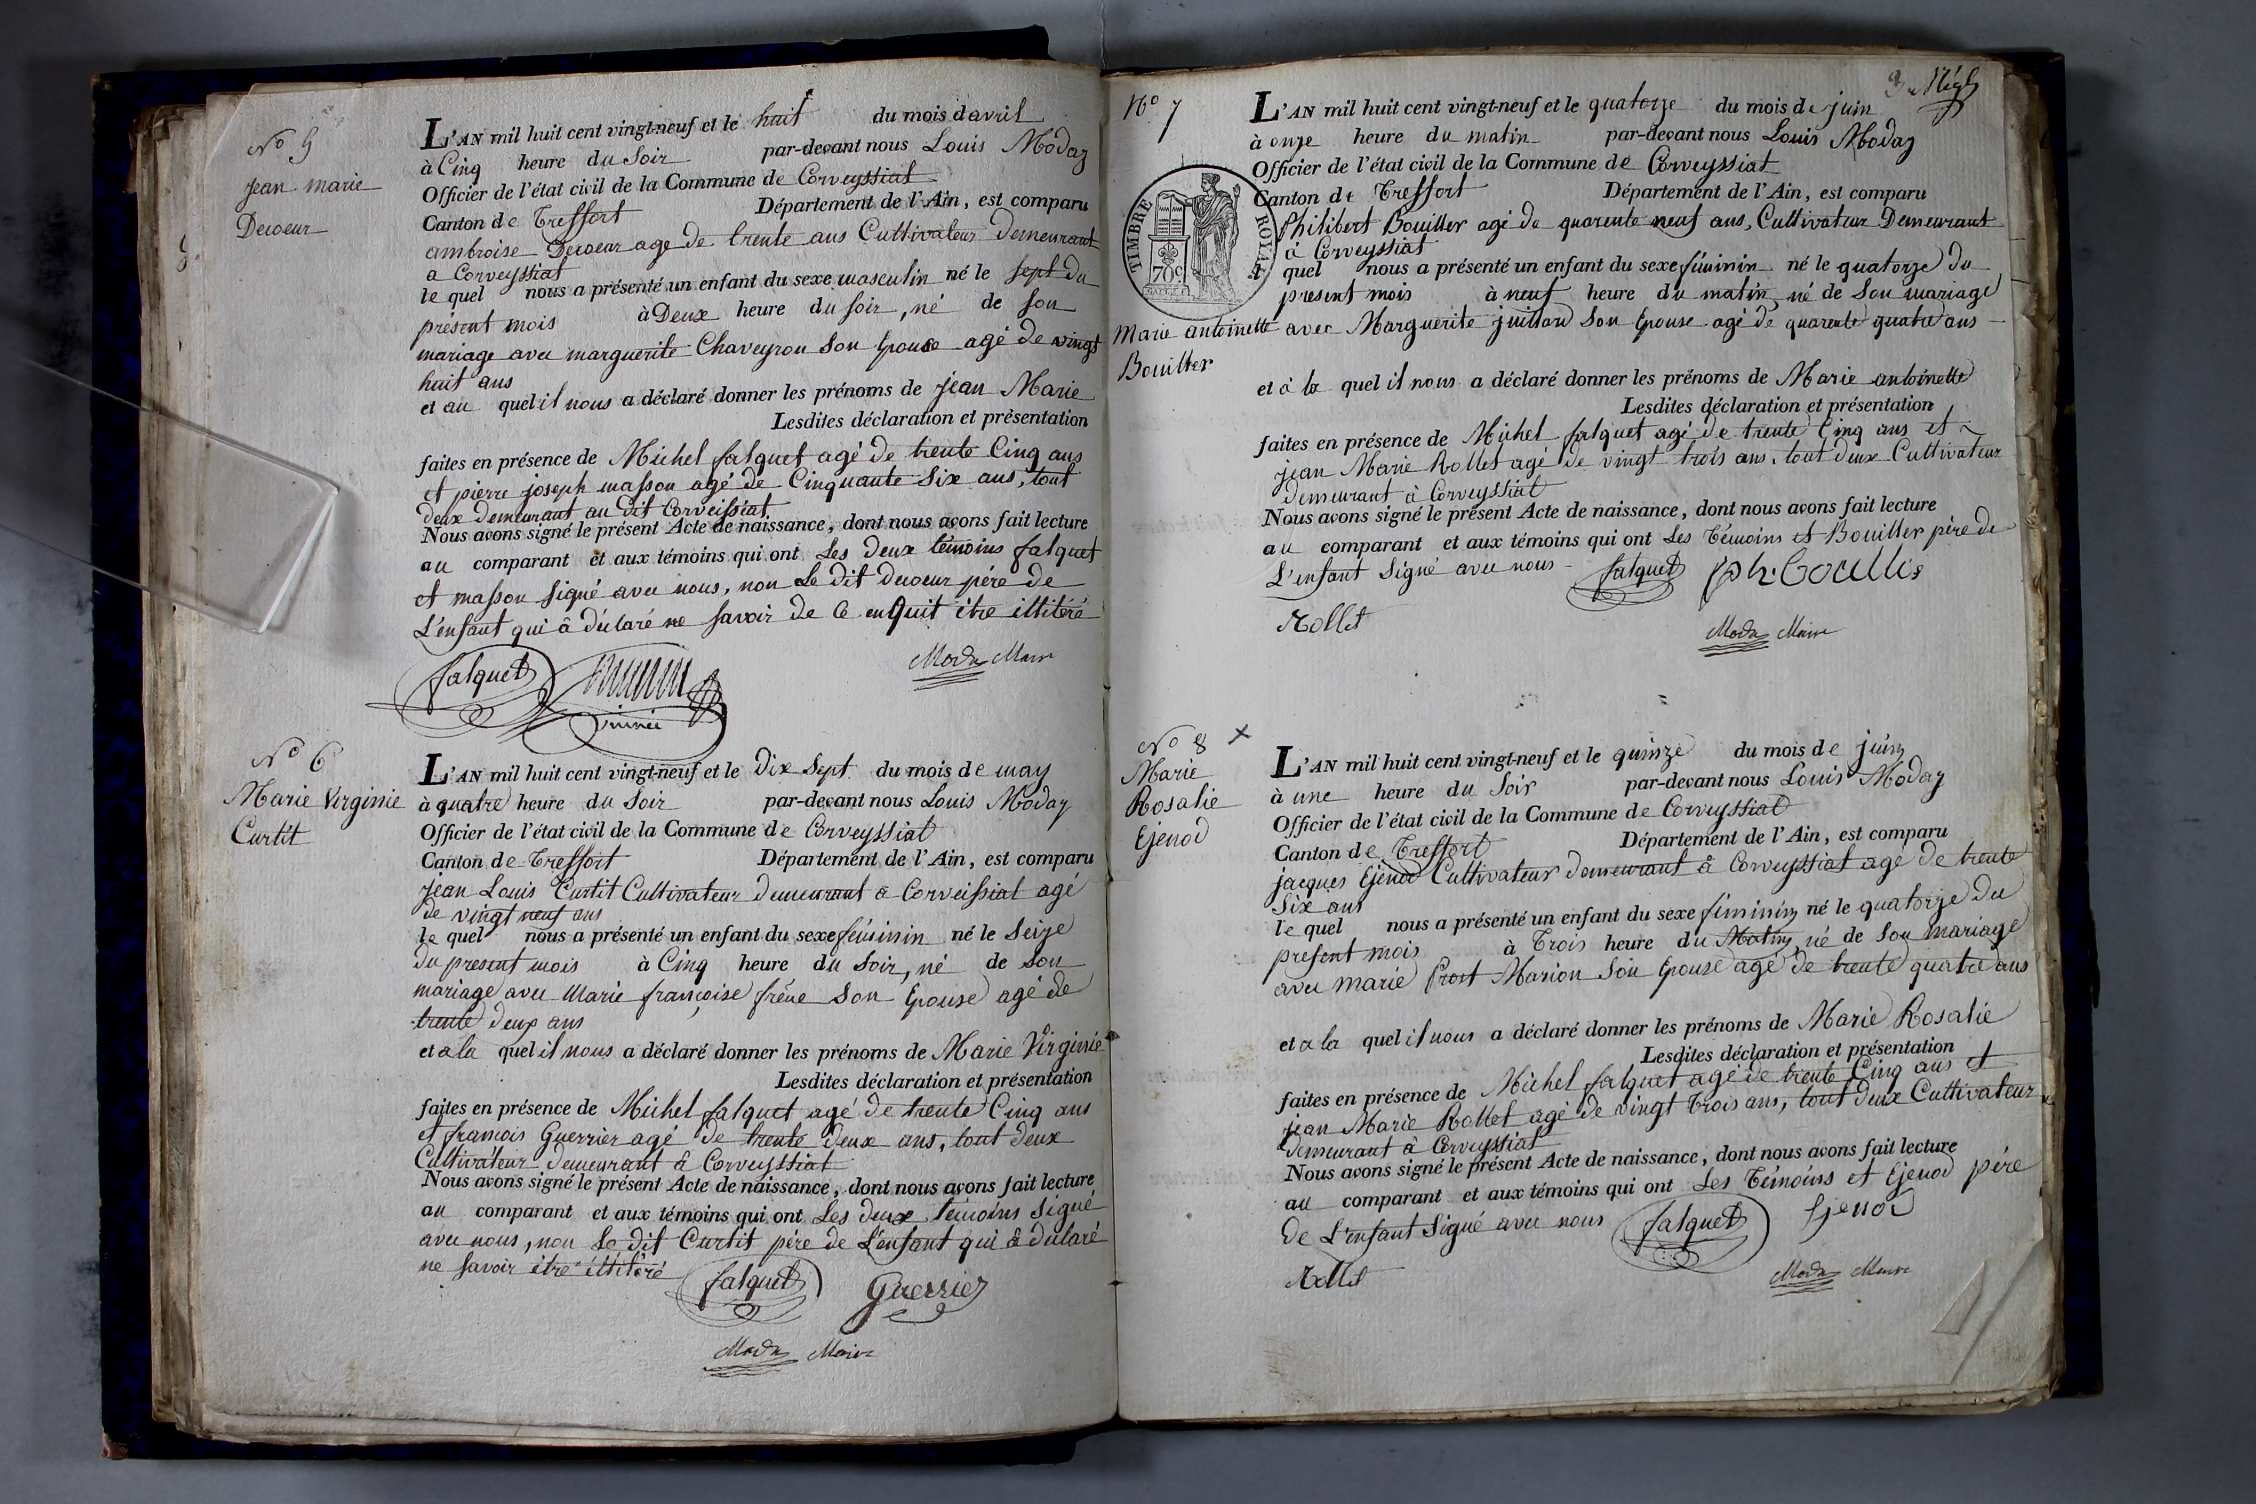 No 5
jean marie
Decoeur
L'AN mil huit cent vingt-neuf et le huit du mois d'avril
à Cinq heure du Soir par-devant nous Louis Moday
Officier de l'état civil de la Commune de Corveyssiat
Canton de Treffort Département de l'Ain, est comparu
ambroise Decoeur age de trente ans Cultivateur demeurant
a Corveyssiat
le quel nous a présenté un enfant du sexe masculin né le sept du
présent mois à Deux heure du soir, né de son
mariage avec marguerite Chaveyron son Epouse agé de vingt
huit ans
et au quel il nous a déclaré donner les prénoms de jean Marie
Lesdites déclaration et présentation
faites en présence de Michel falquet agé de trente Cinq ans
et pierre joseph masson agé de Cinquante Six ans, tout
deux demeurant au dit Corveissiat
Nous avons signé le présent Acte de naissance, dont nous avons fait lecture
au comparant et aux témoins qui ont Les deux témoins falquet
et masson signé avec nous, non Le dit decoeur pére de
L'enfant qui â déclaré ne savoir de Ce enquit être illitéré
falquet
Moda Maire
No 6
Marie Virginie
Curtit
L'AN mil huit cent vingt-neuf et le dix Sept du mois de may
à quatre heure du Soir par-devant nous Louis Moday
Officier de l'état civil de la Commune de Corveyssiat
Canton de Treffort Département de l'Ain, est comparu
jean Louis Curtit Cultivateur demeurant a Corveissiat agé
de vingt neuf ans
le quel nous a présenté un enfant du sexe féminin né le Seize
du present mois à Cinq heure du Soir, né de son
mariage avec Marie françoise frêne son Epouse agé de
trente deux ans
et a la quel il nous a déclaré donner les prénoms de Marie Virginie
Lesdites déclaration et présentation
faites en présence de Michel falquet agé de trente Cinq ans
et francois Guerrier agé de trente deux ans, tout deux
Cultivateur demeurant à Corveyssiat
Nous avons signé le présent Acte de naissance, dont nous avons fait lecture
au comparant et aux témoins qui ont Les deux témoins signé
avec nous, non Le dit Curtit pére de L'enfant qui â déclaré
ne savoir être illitéré
falquet Guerrier
Moda Maire
No 7
L'AN mil huit cent vingt-neuf et le quatorze du mois de juin
à onze heure du matin par-devant nous Louis Moday
Officier de l'état civil de la Commune de Corveyssiat
Canton de Treffort Département de l'Ain, est comparu
TIMBRE ROYAL
70c
Philibert Bouiller agé de quarente neuf ans, Cultivateur Demeurant
à Corveyssiat
le quel nous a présenté un enfant du sexe féminin né le quatorze du
present mois à neuf heure du matin, né de Son mariage
Marie antoinette
Bouiller
avec Marguerite juillard Son Epouse agé de quarente quatre ans
et à la quel il nous a déclaré donner les prénoms de Marie antoinette
Lesdites déclaration et présentation
faites en présence de Michel falquet agé de trente Cinq ans et
jean Marie Rollet agé de vingt trois ans, tout deux Cultivateur
demeurant à Corveyssiat
Nous avons signé le présent Acte de naissance, dont nous avons fait lecture
au comparant et aux témoins qui ont Les Témoins et Bouiller père de
L'enfant Signé avec nous falquet
Rollet
Moda Maire
No 8 x
Marie
Rosalie
Ejenod
L'AN mil huit cent vingt-neuf et le quinze du mois de juin
à une heure du Soir par-devant nous Louis Moday
Officier de l'état civil de la Commune de Corveyssiat
Canton de Treffort Département de l'Ain, est comparu
jacques Ejenod Cultivateur demeurant à Corveyssiat agé de trente
Six ans
le quel nous a présenté un enfant du sexe féminin né le quatorze du
present mois à Trois heure du Matin, né de Son mariage
avec marie Prost Marion Son Epouse agé de trente quatre ans
et a la quel il nous a déclaré donner les prénoms de Marie Rosalie
Lesdites déclaration et présentation
faites en présence de Michel falquet agé de trente Cinq ans et
jean Marie Rollet agé de vingt Trois ans, tout deux Cultivateur
demeurant à Corveyssiat
Nous avons signé le présent Acte de naissance, dont nous avons fait lecture
au comparant et aux témoins qui ont Les Témoins et Ejenod pére
de L'enfant Signé avec nous falquet Ejenod
Rollet
Moda Maire